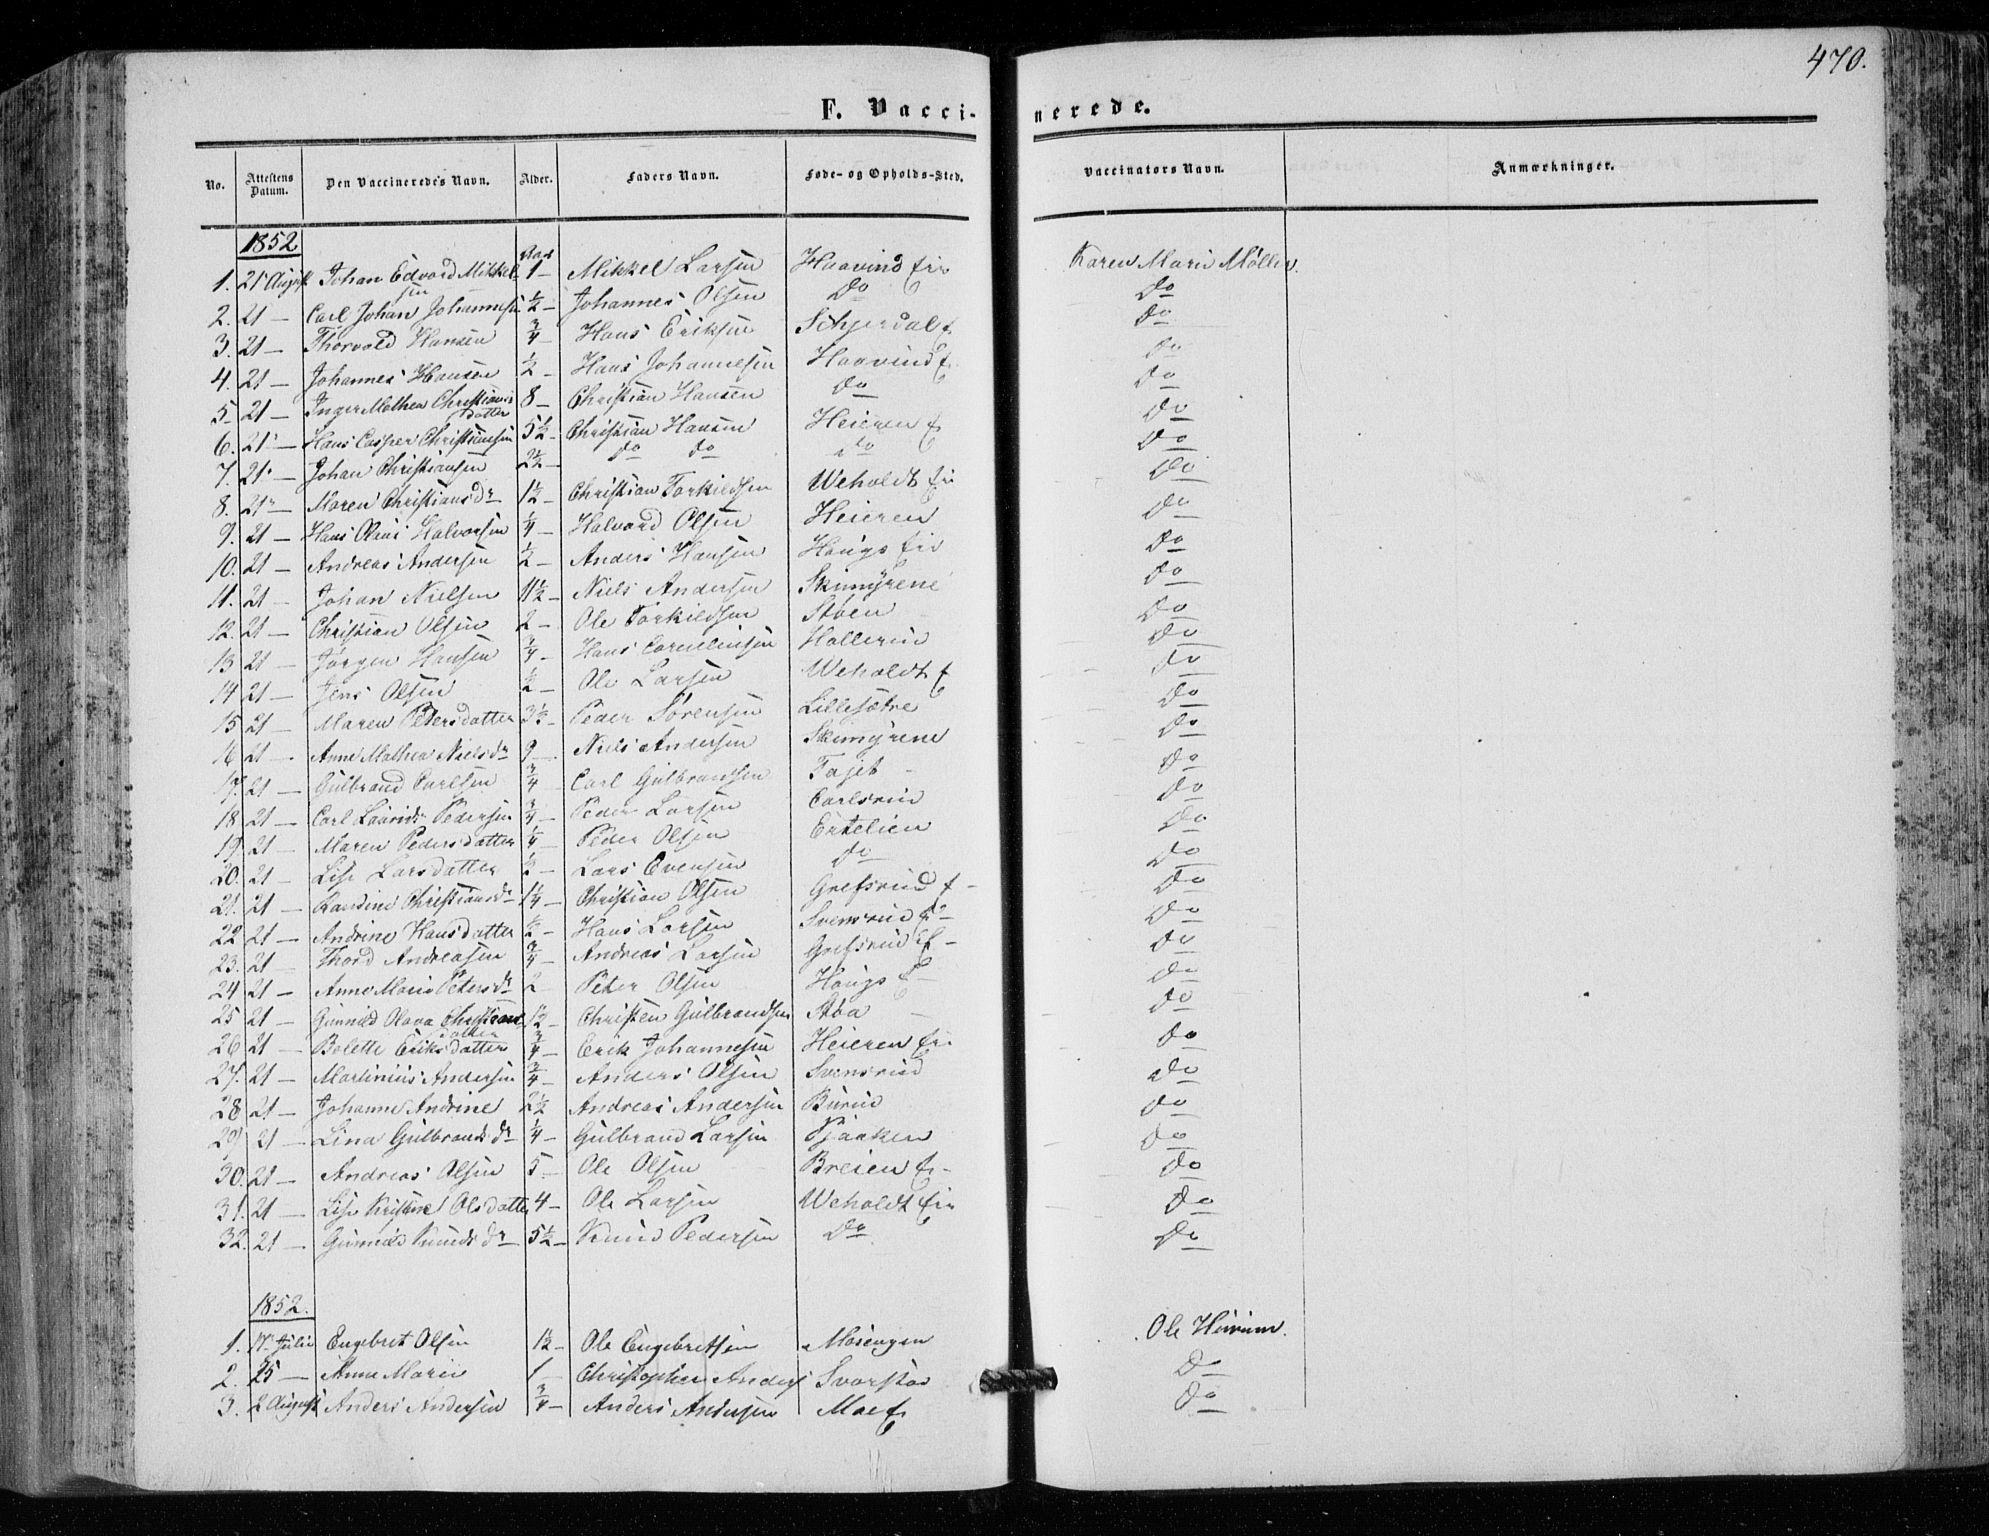 470.
F. Vacci-nerede.
No. Attestens Datum. Den Vaccineredes Navn. Alder. Faders Navn. Føde- og Opholds-Sted. Vaccinators Navn. Anmærkninger.
1852 Aar
1. 21 August Johan Edvard Mikkelsen 1 - Mikkel Larsen Haavind Karen Marie Møller.
2. 21 - Carl Johan Johannesen 1/2 - Johannes Olsen Do Do
3. 21 - Thorvald Hansen 3/4 Hans Eriksen Schjerdal Do
4. 21 - Johannes Hansen 1/2 - Hans Johannesen Haavind Do
5 21 - Inger Mathea Christiansdatter 8 - Christian Hansen Do Do
6. 21 - Hans Casper Christiansen 5 1/2 - Christian Hansen Heieren Do
7. 21 Johan Christiansen 2 1/2 - Do Do Do Do
8. 21 - Maren Christiansdr 1 1/2 - Christian Torkildsen Weholdt Do
9. 21 - Hans Olaus Halvorsen 1/4 - Halvord Olsen Heieren Do
10. 21 - Andreas Andersen 1/2 - Anders Hansen Haugs Do
11. 21 - Johan Nielsen 11 1/2 - Niels Andersen Skimyrene Do
12. 21 - Christian Olsen 2 - Ole Torkildsen Støen Do
13 21 - Jørgen Hansen 3/4 - Hans Corneliusen Hollerud Do
14 21 - Jens Olsen 1/2 - Ole Larsen Weholdt Do
15 21 - Maren Petersdatter 3 1/2 - Peder Sørensen Lillesætre Do
16 21 - Anne Mathea Nielsdr 9 - Niels Andersen Skimyrene Do
17. 21 - Gulbrand Carlsen 3/4 Carl Gulbrandsen Fajet - Do
18 21 - Carl Pedersen 3/4 - Peder Larsen Carlsrud Do
19. 21 - Maren Pedersdatter 1/4 - Peder Olsen Ertelien Do
20. 21 - Lise Larsdatter 1/2 - Lars Evensen Do Do
21. 21 - Randine Christiansdr 1 1/4 - Christian Olsen Grefsrud Do
22 21 - Andrine Hansdatter 1/2 - Hans Larsen Svensrud Do
23. 21 - Thord Andreasen 3/4 - Andreas Larsen Grefsrud Do
24 21 - Anne Marie Petersdr 2 Peter Olsen Haugs Do
25 21 - Gunnild Olava Christiansdatter 1 1/2 - Christen Gulbrandsen Støa - Do
26 21 - Bolette Eriksdatter 3/4 - Erik Johannesen Heieren Do
27. 21 - Martinius Andersen 3/4 - Anders Olsen Svensrud Do
28 21 - Johanne Andrine 2 1/2 Andreas Andersen Burud Do
29 21 - Lina Gulbrandsdr 1/4 - Gulbrand Larsen Pjaaken Do
30. 21 - Andreas Olsen 5 - Ole Olsen Breien Do
31. 21 - Lise Kristine Olsdatter 4 - Ole Larsen Weholdt Do
32. 21 - Gunnild Knudsdr 5 1/2 - Knud Pedersen Do Do
1852.
1. 17 Julii Engebret Olsen 1 1/2 - Ole Engebretsen Mosengen Ole Hurum.
2. 25 - Anna Marie 1 - Christopher Anders Svarstad Do
3. 2 August Anders Andersen 3/4 - Anders Andersen Moe Do